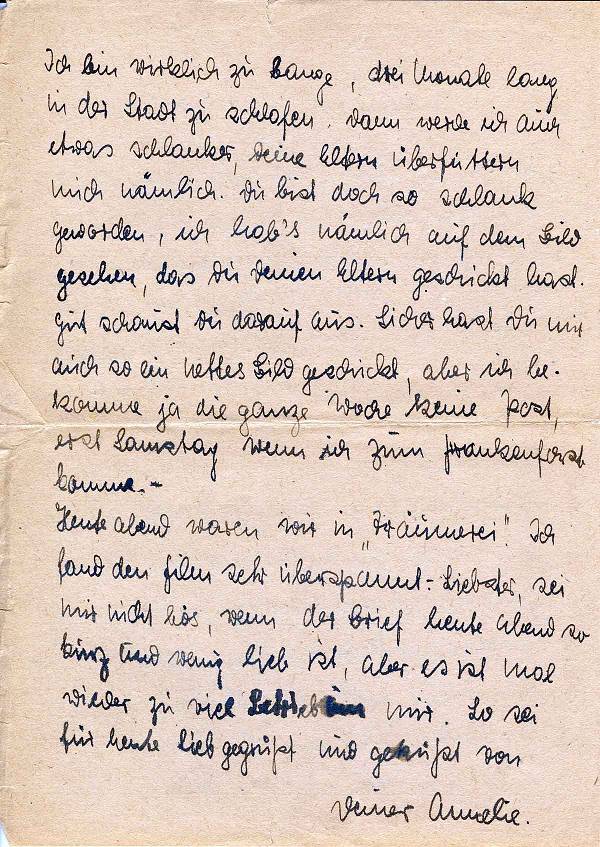 Ich bin wirklich zu bange, drei Monate lang
in der Stadt zu schlafen. Dann werde ich auch
etwas schlanker, Deine Eltern überfüttern
mich nämlich. Du bist doch so schlank
geworden, ich hab's nämlich auf dem Bild
gesehen, das Du Deinen Eltern geschickt hast.
Gut schaust Du darauf aus. Sicher hast Du mir
auch so ein nettes Bild geschickt, aber ich be-
komme ja die ganze Woche keine Post,
erst Samstag wenn ich zum Frankenforst
komme. -
Heute abend waren wir in „Träumerei". Ich
fand den Film sehr überspannt. - Liebster, sei
mir nicht bös, wenn der Brief heute abend so
kurz und wenig lieb ist, aber es ist mal
wieder zu viel Betrieb um mir. So sei
für heute lieb gegrüßt und geküßt von
Deiner Annelie.